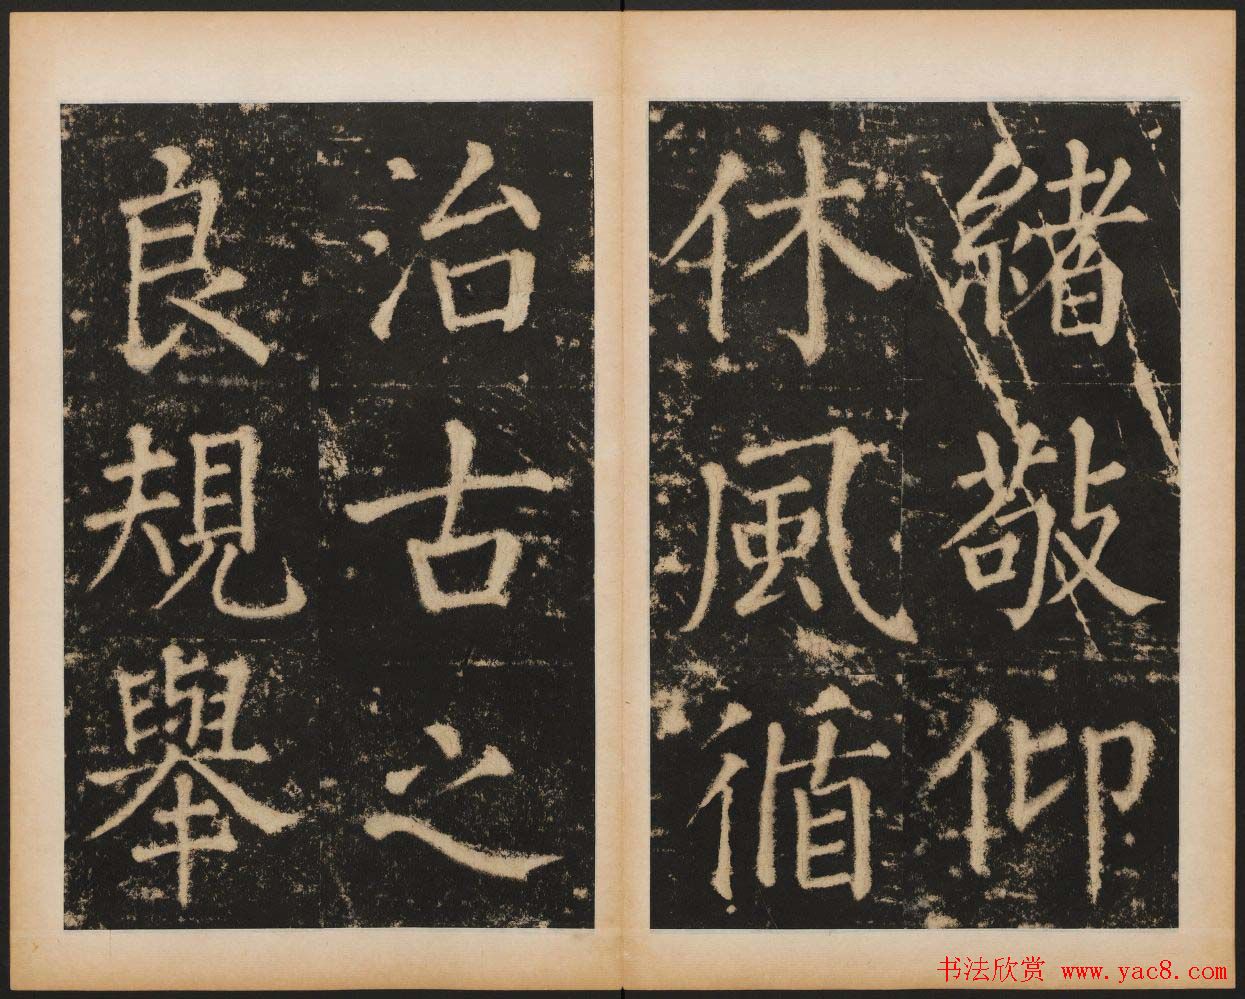 緒敬仰
休風循
冶古之
良規舉
书法欣赏 www.yac8.com